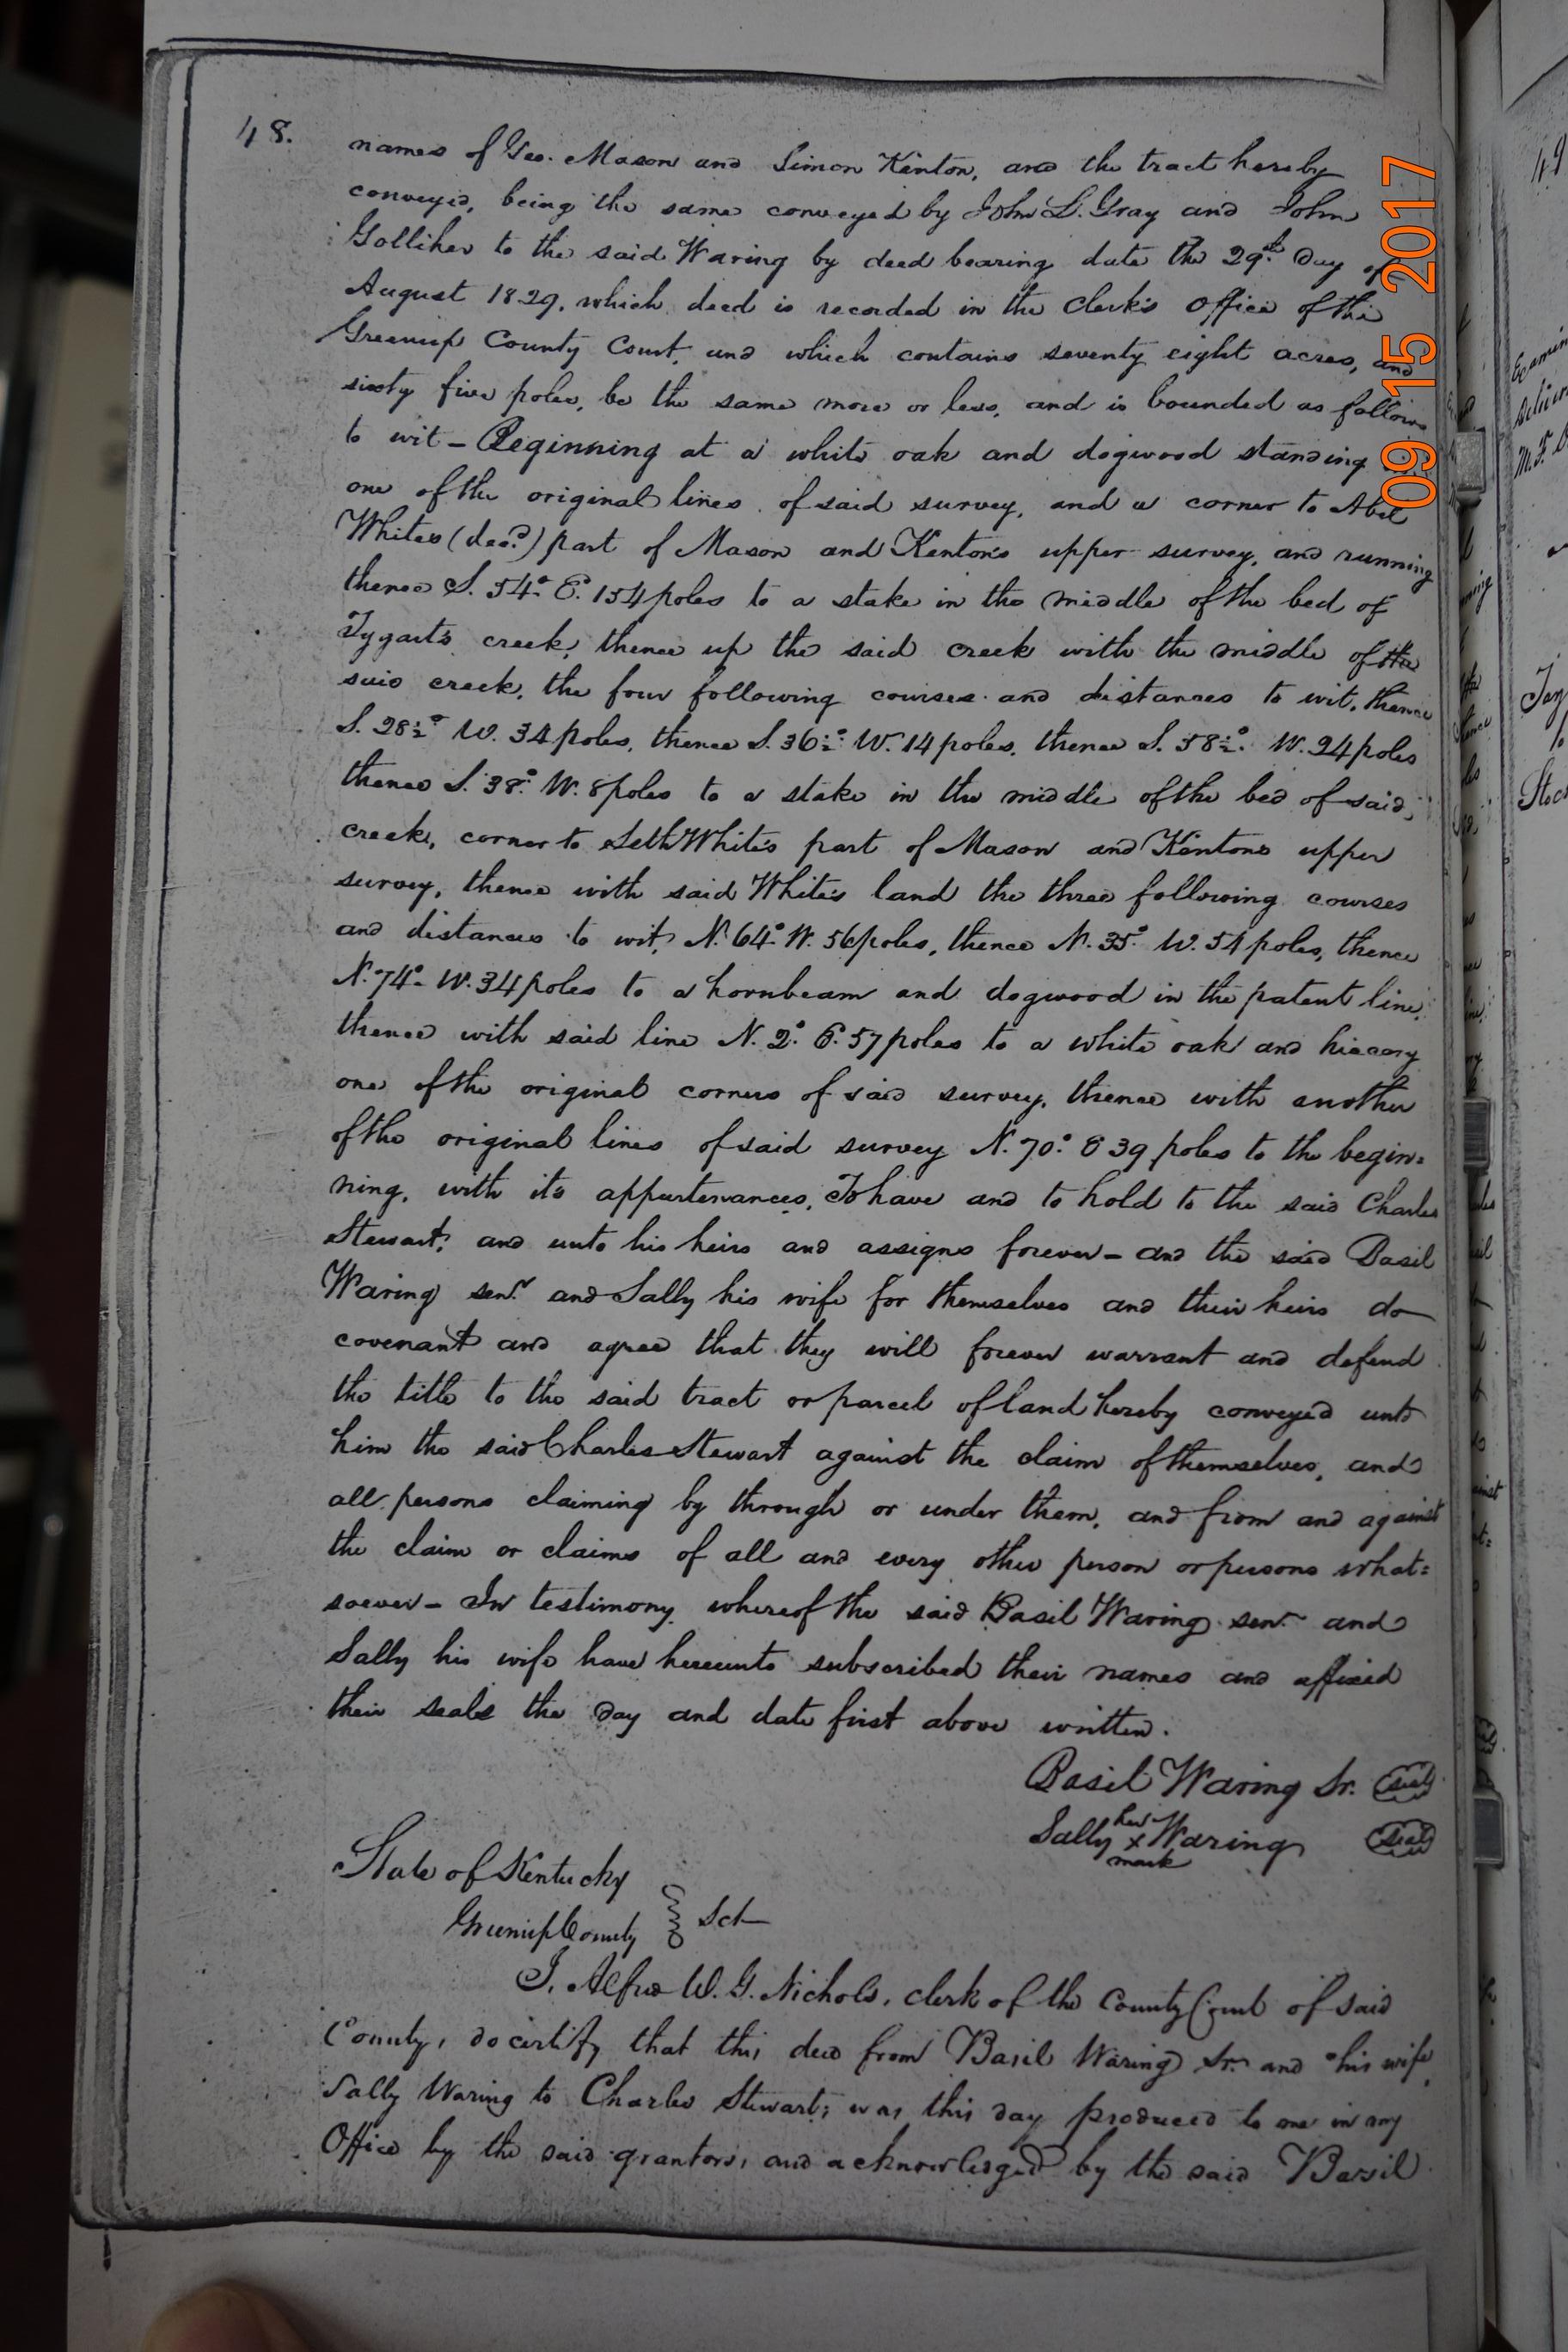 48.
names of Geo. Mason and Simon Kenton, and the tract hereby
conveyed, being the same conveyed by John L. Gray and John
Golliher to the said Waring by deed bearing date the 29th. day of
August 1829, which deed is recorded in the Clerk's Office of the
Greenup County Court, and which contains seventy eight acres, and
sixty five poles, be the same more or less, and is bounded as follows
to wit – Beginning at a white oak and dogwood standing
one of the original lines of said survey, and a corner to Abel
Whites (decd.) part of Mason and Kenton's upper survey, and running
thence S. 54° E. 154 poles to a stake in the middle of the bed of
Tygart's creek, thence up the said creek with the middle of the
said creek, the four following courses and distances to wit, thence
S. 28½° W. 34 poles, thence S. 36½° W. 14 poles, thence S. 58½° W. 24 poles
thence S. 38° W. 8 poles to a stake in the middle of the bed of said
creek, corner to Seth White's part of Mason and Kentons upper
survey, thence with said White's land the three following courses
and distances to wit, N. 64° W. 56 poles, thence N. 35° W. 54 poles, thence
N. 74° W. 34 poles to a hornbeam and dogwood in the patent line,
thence with said line N. 2° E. 57 poles to a white oak and hiccory
one of the original corners of said survey, thence with another
of the original lines of said survey N. 70° E 39 poles to the begin=
ning, with its appurtenances, To have and to hold to the said Charles
Stewart, and unto his heirs and assigns forever – and the said Basil
Waring senr. and Sally his wife for themselves and their heirs do
covenant and agree that they will forever warrant and defend
the title to the said tract or parcel of land hereby conveyed unto
him the said Charles Stewart against the claim of themselves, and
all persons claiming by through or under them, and from and against
the claim or claims of all and every other person or persons what=
soever – In testimony whereof the said Basil Waring senr. and
Sally his wife have hereunto subscribed their names and affixed
their seals the day and date first above written.
Basil Waring Sr. seal
Sally her x mark Waring seal
State of Kentucky
Greenup County Sct
I, Alfred W. G. Nichols, clerk of the County Court of said
County, do certify that this deed from Basil Waring Sr. and his wife
Sally Waring to Charles Stewart, was this day produced to me in my
Office by the said grantors, and acknowledged by the said Basil
09 15 2017